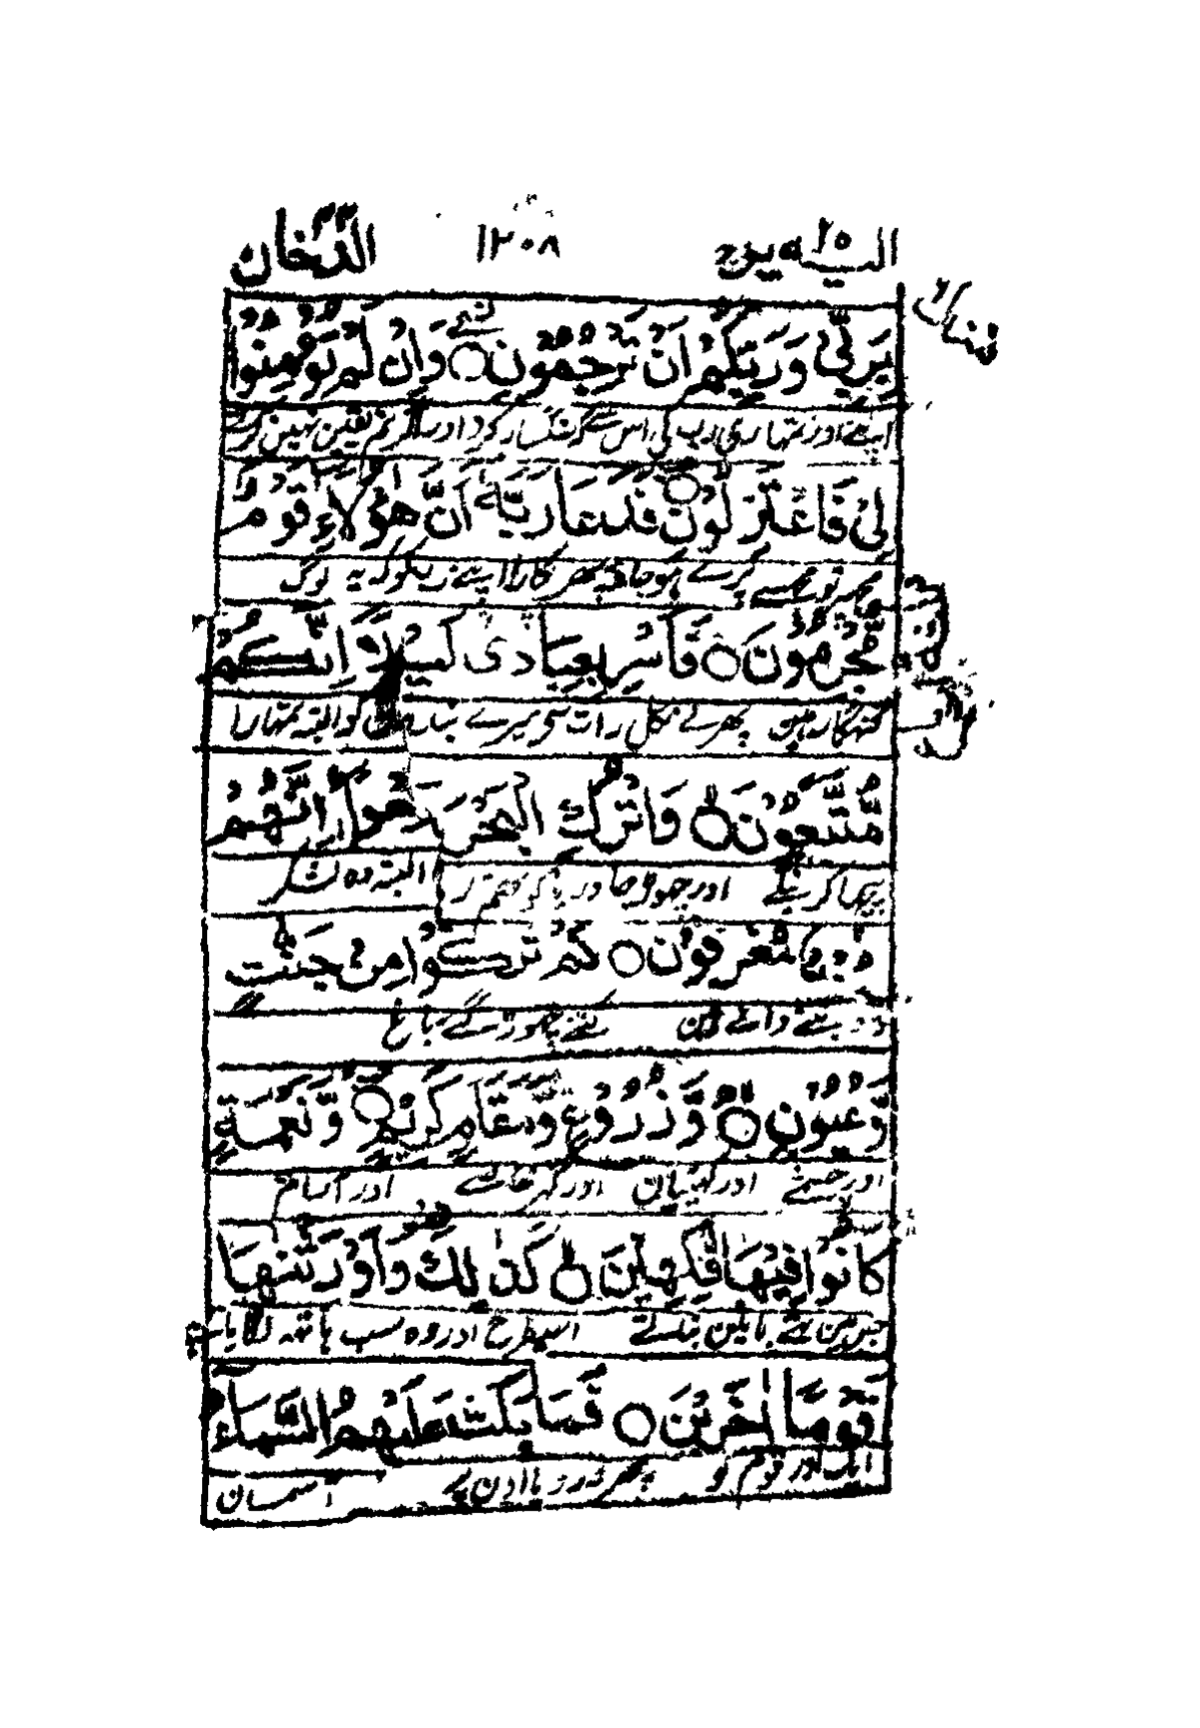 الدخان ۱۲۰۸ الیہ یرد ۲۵
بِرَبِّیْ وَرَبِّكُمْ اَنْ تَرْجُمُوْنِ ○ وَاِنْ لَّمْ تُؤْمِنُوْا
اپنے اور تمہاری رب کی اس سے کہ سنگسار کرو اور اگر تم یقین نہین کرتے
لِیْ فَاعْتَزِلُوْنِ ○ فَدَعَا رَبَّهٗۤ اَنَّ هٰۤؤُلَآءِ قَوْمٌ
مجھپر تو مجھسے پرے ہو جاؤ پھر پکارا اپنے رب کو کہ یہ لوگ
مُّجْرِمُوْنَ ○ فَاَسْرِ بِعِبَادِیْ لَیْلًا اِنَّكُمْ
گنہگار ہین پھر لے نکل رات سی میرے بندون کو البتہ تمہارا
مُّتَّبَعُوْنَ ○ وَاتْرُكِ الْبَحْرَ رَهْوًا اِنَّهُمْ
پیچھا کرینگے اور چھوڑ جا دریا کو تھم رہا البتہ وہ لشکر
جُنْدٌ مُّغْرَقُوْنَ ○ كَمْ تَرَكُوْا مِنْ جَنّٰتٍ
ڈوبنے والے ہین کتنے چھوڑ گئے باغ
وَّعُیُوْنٍ ○ وَّزُرُوْعٍ وَّمَقَامٍ كَرِیْمٍ ○ وَّنَعْمَةٍ
اور چشمے اور کھیتیان اور گھر خاصے اور آرام
كَانُوْا فِیْهَا فٰكِهِیْنَ ○ كَذٰلِكَ وَاَوْرَثْنٰهَا
جس مین تھے باتین بناتے اسیطرح اور وہ سب ہاتھ لگایا
قَوْمًا اٰخَرِیْنَ ○ فَمَا بَكَتْ عَلَیْهِمُ السَّمَآءُ
ایک اور قوم کو پھر نہ رویا اون پر آسمان